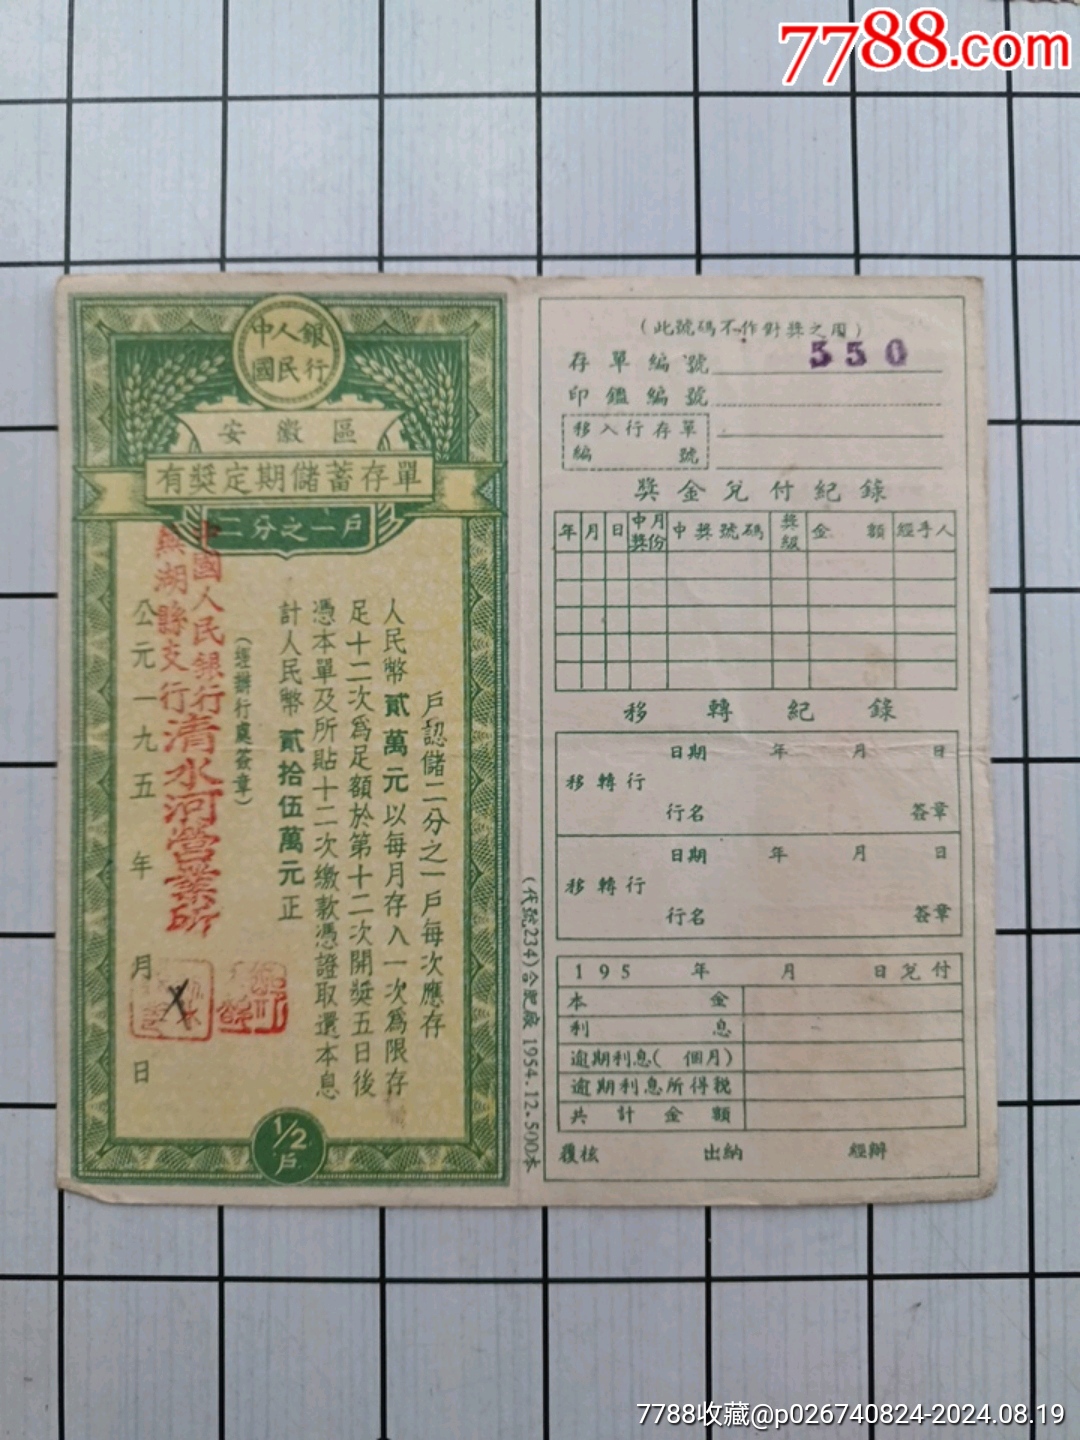 7788.com
中人銀
國民行
安徽區
有獎定期儲蓄存單
二分之一戶
戶認儲二分之一戶每次應存
人民幣貳萬元以每月存入一次為限存
足十二次為足額於第十二次開獎五日後
憑本單及所貼十二次繳款憑證取還本息
計人民幣貳拾伍萬元正
(經辦行處簽章)
中國人民銀行
蕪湖縣支行
清水河營業所
公元一九五 年 月 日
1/2
戶
(代號234)合肥廠 1954.12.500本
(此號碼不作對獎之用)
存單編號 550
印鑑編號
移入行存單
編號
獎金兌付紀錄
年 月 日 中月獎份 中獎號碼 獎級 金額 經手人
移轉紀錄
日期 年 月 日
移轉行
行名 簽章
日期 年 月 日
移轉行
行名 簽章
195 年 月 日兌付
本金
利息
逾期利息( 個月)
逾期利息所得稅
共計金額
覆核 出納 經辦
7788收藏@p026740824-2024.08.19